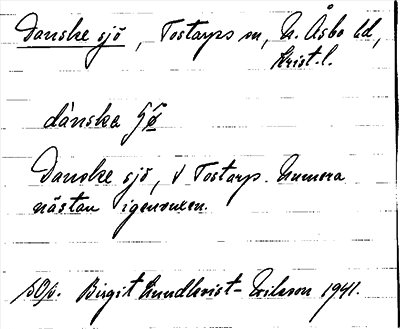 Danske sjö, Tostarps sn, N. Åsbo hd,
Krist. l.
dánska sø
Danske sjö, V Tostarp. Numera
nästan igenvuxen.
sOp. Birgit Lundkvist-Eriksson 1941.